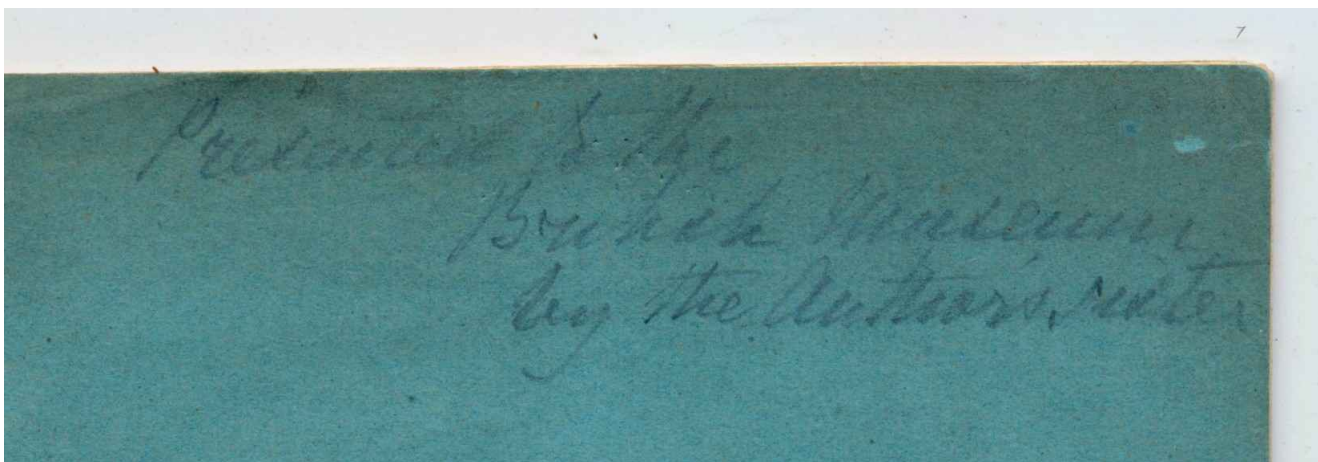 Presented to the
British Museum
by the Author's sister